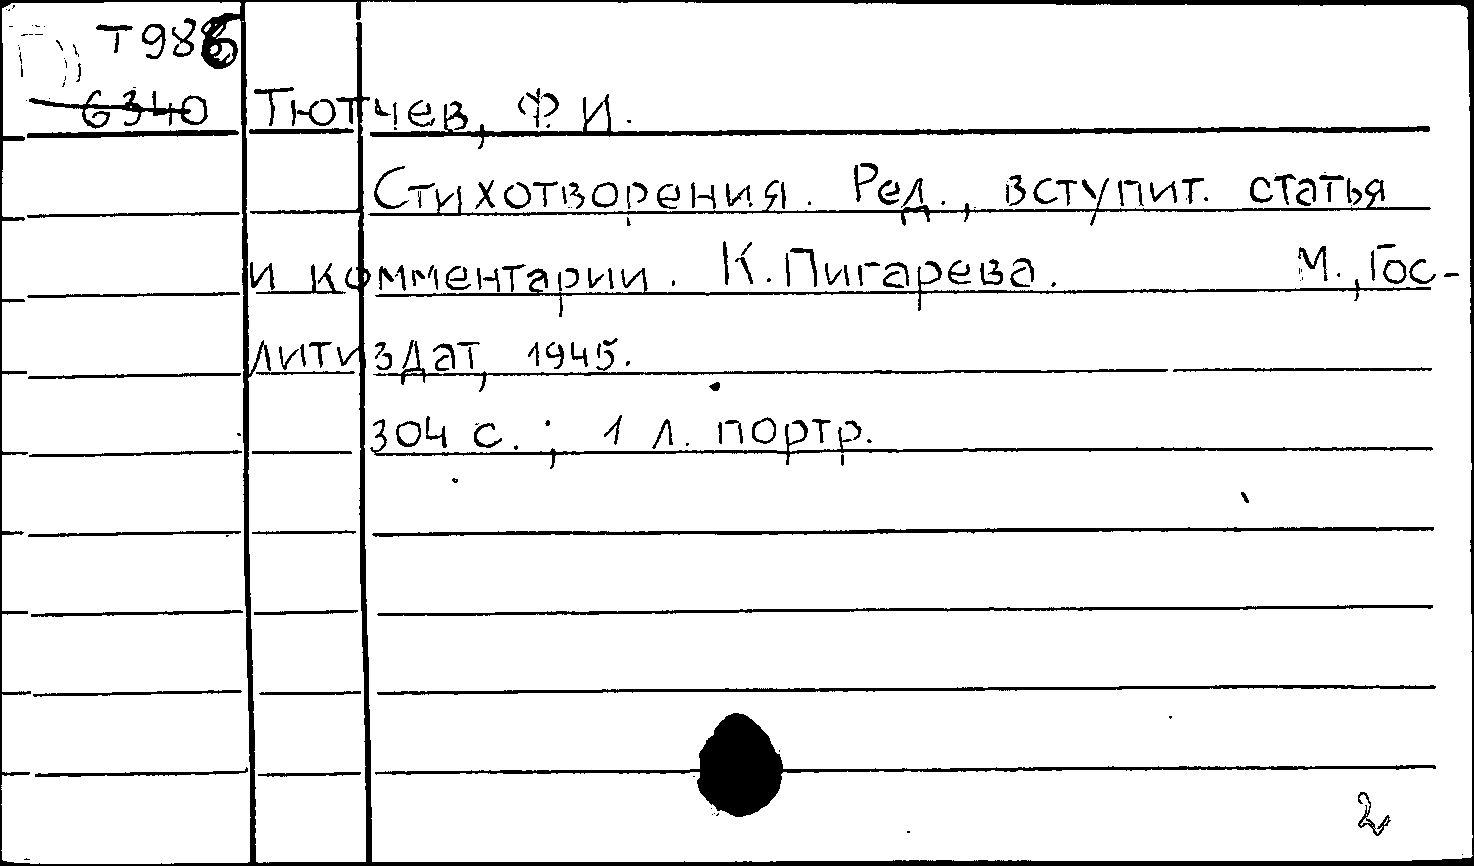 Т986
6340 Тютчев, Ф. И.
Стихотворения. Ред., вступит. статья
и комментарии. К. Пигарева. М., Гос-
литиздат, 1945.
304 с.; 1 л. портр.
2